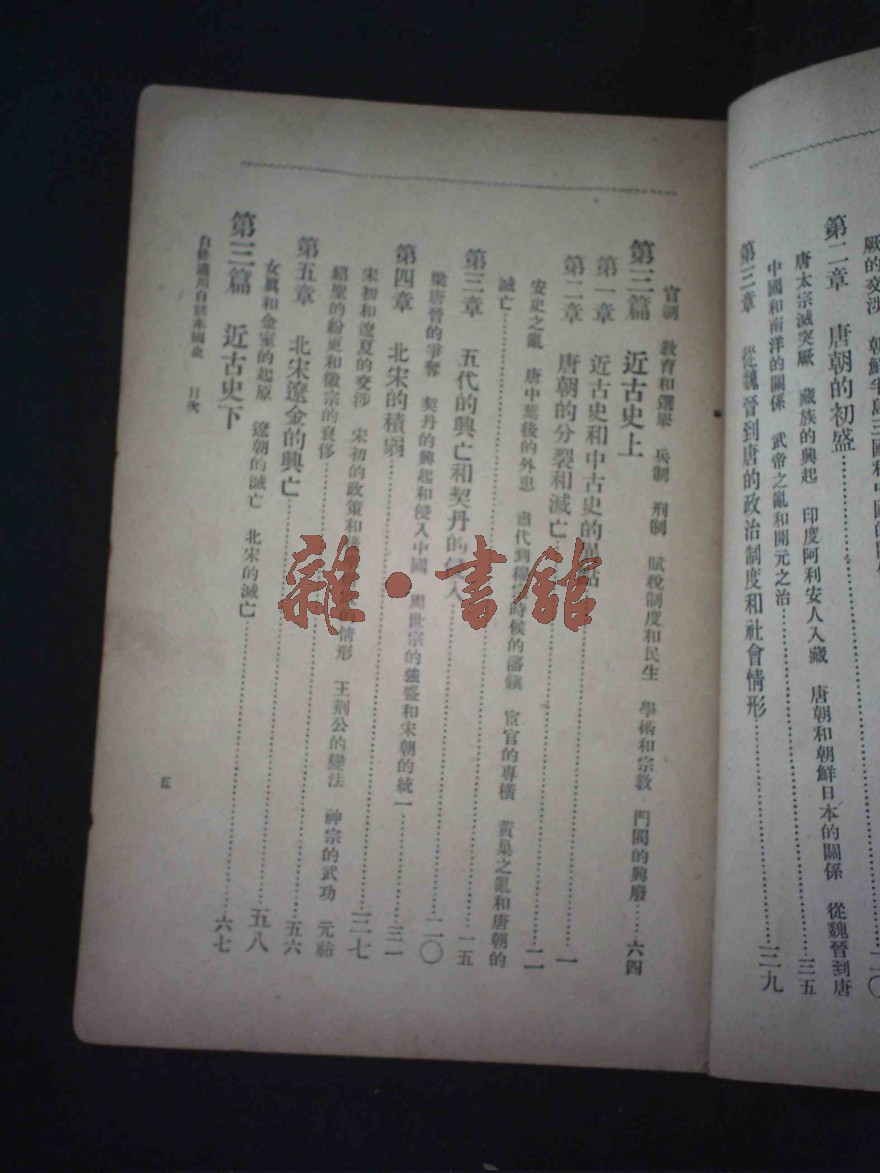 厥的交涉　朝鮮半島三國和中國的關係
二〇
第二章　唐朝的初盛
唐太宗滅突厥　藏族的興起　印度阿利安人入藏　唐朝和朝鮮日本的關係　從魏晉到唐
中國和南洋的關係　武韋之亂和開元之治
三五
第三章　從魏晉到唐的政治制度和社會情形
三九
官制　教育和選舉　兵制　刑制　賦稅制度和民生　學術和宗教　門閥的興廢……六四
第三篇　近古史上
第一章　近古史和中古史的異點
一
第二章　唐朝的分裂和滅亡
二
安史之亂　唐中葉後的外患　肅代到穆宗時候的藩鎮　宦官的專橫　黃巢之亂和唐朝的
滅亡……一五
第三章　五代的興亡和契丹的侵入
二〇
梁唐晉的爭奪　契丹的興起和侵入中國　周世宗的強盛和宋朝的統一……三一
第四章　北宋的積弱
三七
宋初和遼夏的交涉　宋初的政策和後來的情形　王荊公的變法　神宗的武功　元祐
紹聖的紛更和徽宗的衰侈……五六
第五章　北宋遼金的興亡
五八
女真和金室的起原　遼朝的滅亡　北宋的滅亡……六七
第三篇　近古史下
自修適用白話本國史　目次
五
雜·書館